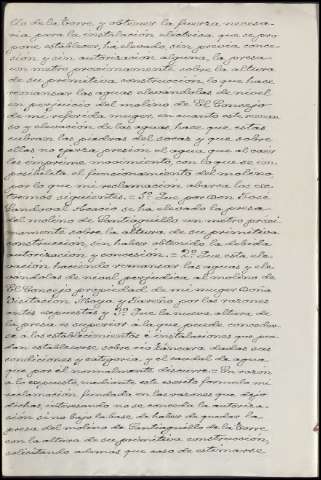 llo de la Torre, y obtener la fuerza necesa-
ria para la instalación eléctrica que se pro-
pone establecer, ha elevado, sin previa conce-
sión, y sin autorización alguna, la presa
un metro proximamente sobre la altura
de su primitiva construcción, lo que hace
remansar las aguas elevándolas de nivel
en perjuicio del molino de El Consejo
de mi referida muger, en cuanto este reman-
so y elevación de las aguas, hace que estas
cubran las piedras del cocao y que sobre
ellas no ejerza presión el agua que al caer
les imprime movimiento, con lo que se im-
posibilita el funcionamiento del molino,
por lo que mi reclamación abarca los ex-
tremos siguientes. = 1º Que por Don José
Sandoval se ha elevado la presa
del molino de Santiaguillo un metro proxi-
mamente sobre la altura de su primitiva
construcción, sin haber obtenido la debida
autorización y concesión. = 2º Que esta ele-
vación haciendo remansar las aguas y ele-
vándolas de nivel, perjudica al molino de
El Consejo propiedad de mi muger Doña
Visitación Moya y por las razones
antes expuestas y 3º Que la nueva altura de
la presa es superior a la que puede conceder-
se a los establecimientos e instalaciones que pue-
dan establecerse sobre río dadas sus
condiciones y categoría y el caudal de agua
que por él normalmente discurre. = En razón
a lo expuesto, mediante este escrito formulo mi
reclamación fundada en las razones que dejo
dichas, interesando no se conceda la autoriza-
ción si no bajo la base de haber de quedar la
presa del molino de Santiaguillo de la Torre
con la altura de su primitiva construcción,
solicitando además que caso de estimarse